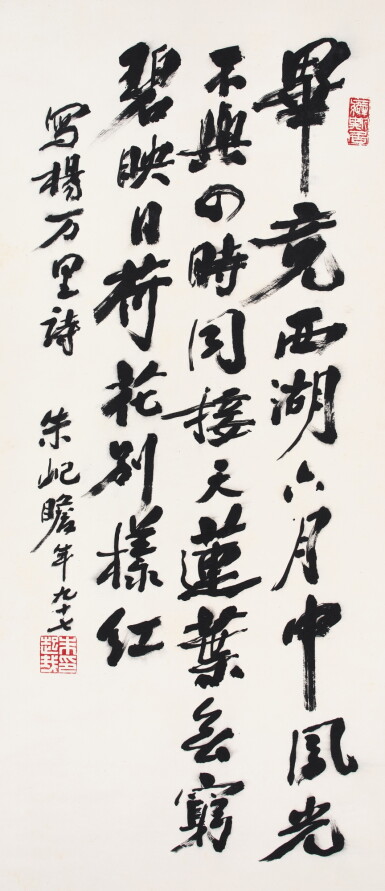 畢竟西湖六月中風光
不與四時同接天蓮葉無窮
碧映日荷花别樣红
写楊万里詩 朱屺瞻年九十七